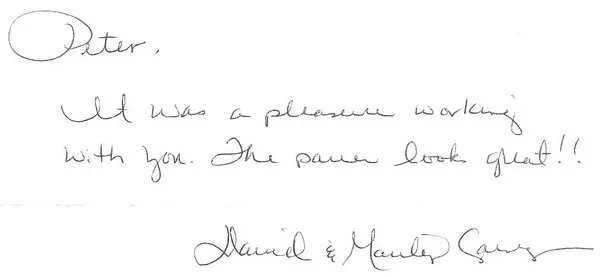 Peter,
It was a pleasure working
with you. The paver looks great!!
David &